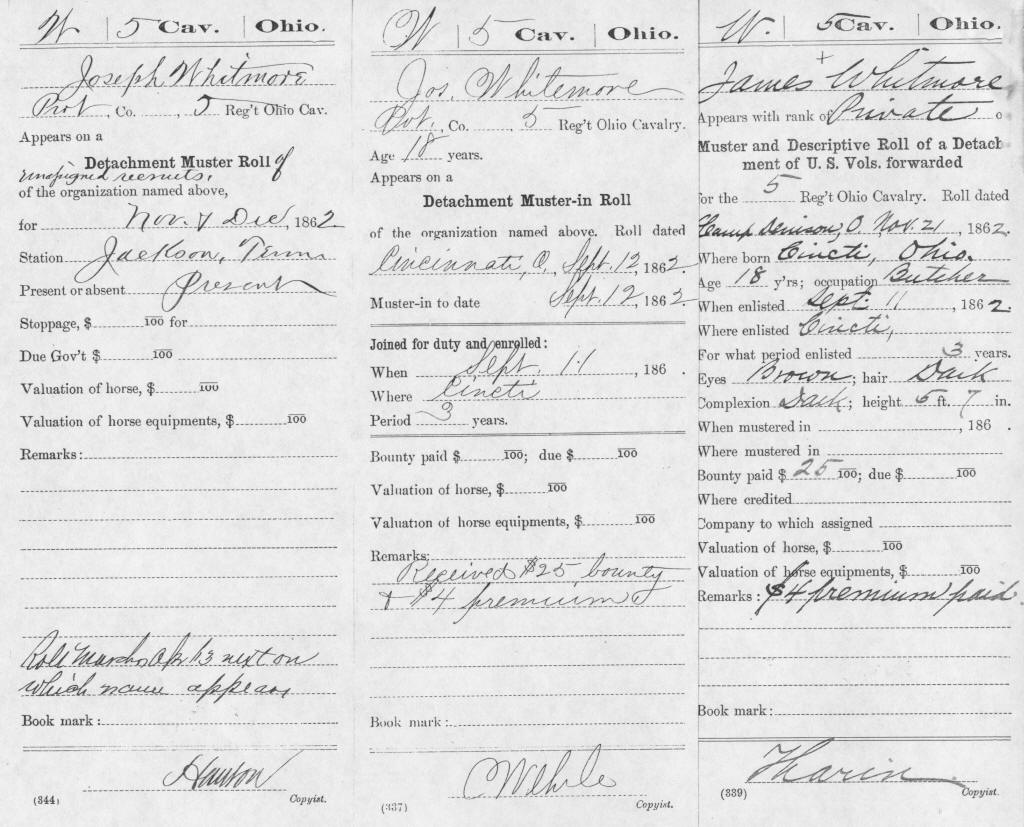 W | 5 Cav. | Ohio.
Joseph Whitmore
Pvt, Co. , 5 Reg't Ohio Cav.
Appears on a
Detachment Muster Roll of
unassigned recruits.
of the organization named above,
for Nov. & Dec, 1862
Station Jackson, Tenn
Present or absent Present
Stoppage, $ 100 for
Due Gov't $ 100
Valuation of horse, $ 100
Valuation of horse equipments, $ 100
Remarks:
Roll March & Apr 63 next on
which name appears
Book mark:
(344) Copyist.
W | 5 Cav. | Ohio.
Jos. Whitemore
Pvt., Co. , 5 Reg't Ohio Cavalry.
Age 18 years.
Appears on a
Detachment Muster-in Roll
of the organization named above. Roll dated
Cincinnati, O, Sept. 12, 1862.
Muster-in to date Sept. 12, 1862
Joined for duty and enrolled:
When Sept. 11, 186 .
Where Cincti
Period 3 years.
Bounty paid $ 100; due $ 100
Valuation of horse, $ 100
Valuation of horse equipments, $ 100
Remarks:
Received $25 bounty
& $4 premium
Book mark:
CWehrle
(337) Copyist.
W. 5 Cav. | Ohio.
James + Whitmore
Appears with rank of Private o
Muster and Descriptive Roll of a Detach
ment of U. S. Vols. forwarded
for the 5 Reg't Ohio Cavalry. Roll dated
Camp Denison, O, Nov. 21, 1862.
Where born Cincti, Ohio.
Age 18 y'rs; occupation Butcher
When enlisted Sept. 11, 1862.
Where enlisted Cincti,
For what period enlisted 3 years.
Eyes Brown; hair Dark
Complexion Dark; height 5 ft. 7 in.
When mustered in , 186 .
Where mustered in
Bounty paid $ 25 100; due $ 100
Where credited
Company to which assigned
Valuation of horse, $ 100
Valuation of horse equipments, $ 100
Remarks: $4 premium paid
Book mark:
(339) Copyist.